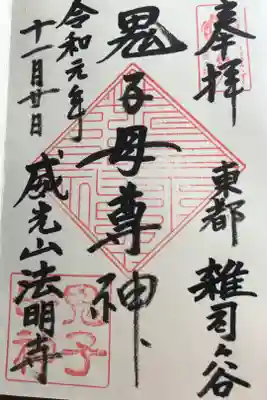 奉拝
東都 雑司ヶ谷
鬼子母尊神
威光山法明寺
令和元年
十一月廿日